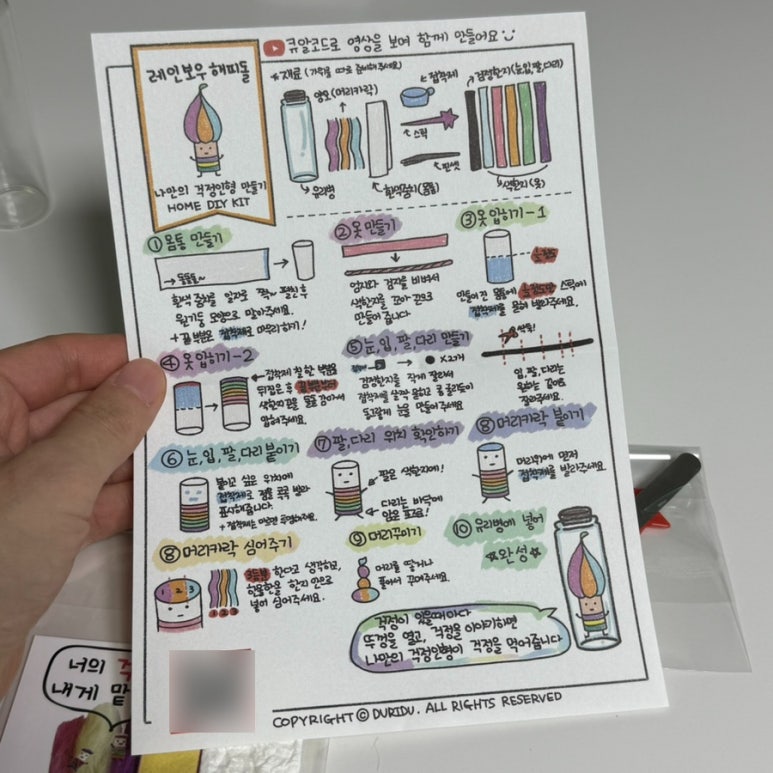 큐알코드로 영상을 보며 함께 만들어요
레인보우 해피돌
나만의 걱정인형 만들기
HOME DIY KIT
* 재료 (가위를 따로 준비해주세요)
양모(머리카락)
접착제
검정한지(눈,입,팔,다리)
스틱
핀셋
유리병
흰색종이(몸통)
색한지(옷)
① 몸통 만들기
→ 돌돌돌~
흰색 종이를 일자로 쫙~ 펼친 후
원기둥 모양으로 말아주세요.
+ 끝부분은 접착제로 마무리하기!
② 옷 만들기
엄지와 검지를 비벼서
색한지를 꼬아 끈으로
만들어 줍니다
③ 옷 입히기-1
눈 정도
만들어진 몸통에 눈 정도만 스틱에
접착제를 묻혀 발라주세요.
④ 옷 입히기-2
접착제 칠한 부분을
뒤집은 후 끝부분부터
색한지끈을 돌돌 감아서
입혀주세요.
⑤ 눈, 입, 팔, 다리 만들기
X2개
검정한지를 작게 잘라서
접착제를 살짝 묻히고 동글동글
동그랗게 눈을 만들어주세요
싹둑!
입, 팔, 다리는
원하는 길이로
잘라주세요.
⑥ 눈, 입, 팔, 다리 붙이기
붙이고 싶은 위치에
접착제로 점을 콕콕 발라
표시해줍니다.
+ 접착제는 마르면 투명해져요.
⑦ 팔, 다리 위치 확인하기
팔은 색한지에!
다리는 바닥에
⑧ 머리카락 붙이기
머리위에 먼저
접착제를 발라주세요.
⑧ 머리카락 심어주기
1 2 3
1 2 3
3등분 한다고 생각하고,
한움큼을 한지 안으로
넣어 심어주세요.
⑨ 머리꾸미기
머리를 땋거나
풀어서 꾸며주세요.
⑩ 유리병에 넣어
☆완성☆
걱정이 있을때마다
뚜껑을 열고, 걱정을 이야기하면
나만의 걱정인형이 걱정을 먹어줍니다
COPYRIGHT © DURIDU. ALL RIGHTS RESERVED
너의
내게 맡